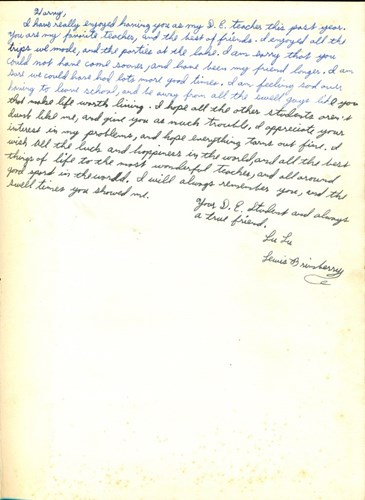 Harvy,
I have really enjoyed having you as my D.E. teacher this past year.
You are my favorite teacher, and the best of friends. I enjoyed all the
trips we made, and the parties at the lake. I am sorry that you
could not have come sooner, and have been my friend longer. I am
sure we could have had lots more good times. I am feeling sad over
having to leave school, and be away from all the swell guys like you
that make life worth living. I hope all the other students aren't
dumb like me, and give you as much trouble. I appreciate your
interest in my problems, and hope everything turns out fine. I
wish all the luck and happiness in the world, and all the best
things of life to the most wonderful teacher, and all around
good sport in the world. I will always remember you, and the
swell times you showed me.
Your D.E. Student and always
a true friend,
Lu Lu
Lewis